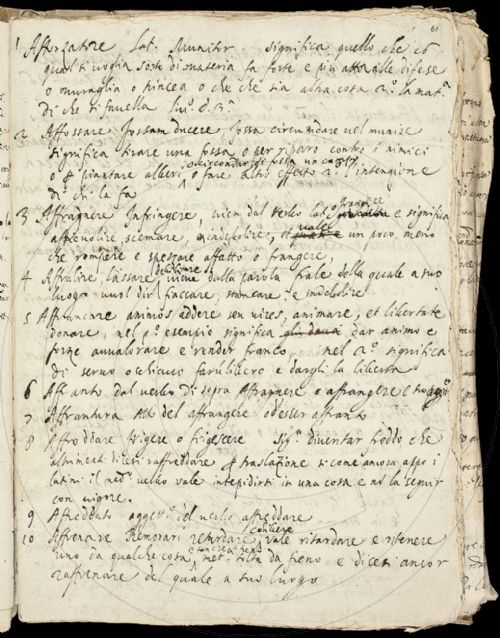 61
1 Afforzatore, Lat. Munitor significa quello che co
qual si voglia sorte di materia fa forte e più atta alle difese
o muraglia o trincea o che che sia altra cosa 2.º la mat.ª
di che si favella
2 Affossare fossam ducere, fossa circundare vel munire
significa tirare una fossa o per riparo contro i nimici
o circondar di fossa un
o piantare alberi o fare altro effetto 2.º l'intenzione
di chi la fa
3 Affragnere infringere, vien dal verbo lat. e significa
affievolire, scemare, indebolire, et un poco meno
che rompere e spezzare affatto o frangere,
4 Affralire, lassare, debilitare viene dalla parola frale della quale a suo
luogo vuol dir fiaccare, stancare e indebolire
5 Affrancare animos addere seu vires, animare, et libertate
donare, nel p.º esempio significa dar animo e
forze avvalorare e render franco, nel 2.º significa
di servo o schiavo farlo libero e dargli la libertà
6 Affranto dal verbo di sopra Affragnere o affrangere
7 Affrantura Att. del affrangere od esser affranto
8 Affreddare frigere o frigescere Sig.ª diventar freddo che
altrimenti dicesi raffreddare traslazione si come ancora appo i
latini il med.º verbo vale intepidirsi in una cosa e no la seguir
con vigore.
9 Affreddato agget.º del verbo affreddare
10 Affrenare Remorari retardare, cohibere vale ritardare e ritenere
uno da qualche cosa, met. tolta da freno e dicesi ancor
raffrenare del quale a suo luogo